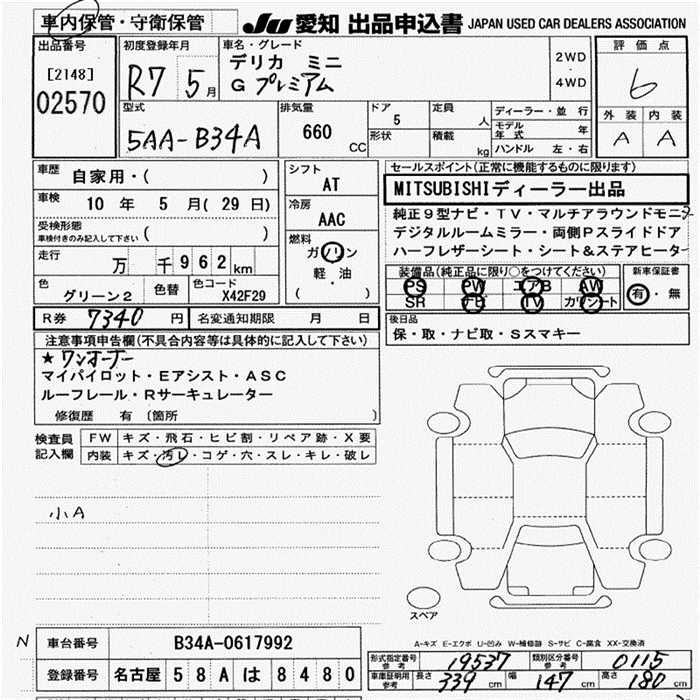 車内保管・守衛保管
JU 愛知 出品申込書 JAPAN USED CAR DEALERS ASSOCIATION
出品番号
[2148]
02570
初度登録年月
R7 5月
車名・グレード
デリカ ミニ
G プレミアム
2WD
・
4WD
評価点
6
外装 内装
A A
型式
5AA-B34A
排気量
660 CC
ドア
5
形状
定員
人
積載
kg
ディーラー・並行
モデル年式 年
ハンドル 左・右
車歴
自家用・( )
車検
10 年 5 月( 29 日)
受検形態
車検付きのみ記入して下さい ( )
走行
万 千962km
色
グリーン2
色替
色コード
X42F29
シフト
AT
冷房
AAC
燃料
ガソリン
軽・油
( )
セールスポイント(正常に機能するものに限ります)
MITSUBISHIディーラー出品
純正9型ナビ・TV・マルチアラウンドモニタ
デジタルルームミラー・両側Pスライドドア
ハーフレザーシート・シート&ステアヒーター
装備品(純正品に限り○をつけてください)
PS PW エアB AW
SR ナビ TV カワシート
新車保証書
有・無
R券 7340 円
名変通知期限 月 日
後日品
保・取・ナビ取・Sスマキー
注意事項申告欄(不具合内容等は具体的に記入して下さい)
★ワンオーナー
マイパイロット・Eアシスト・ASC
ルーフレール・Rサーキュレーター
修復歴 有 (箇所 )
検査員
記入欄
FW キズ・飛石・ヒビ割・リペア跡・X要
内装 キズ・汚レ・コゲ・穴・スレ・キレ・破レ
小A
スペア
A-キズ E-エクボ U-凹み W-補修跡 S-サビ C-腐食 XX-交換済
N
車台番号 B34A-0617992
登録番号 名古屋 58A は 8480
形式指定番号 参考 19537
類別区分番号 参考 0115
車庫証明用 参考 長さ 339 cm 幅 147 cm 高さ 180 cm